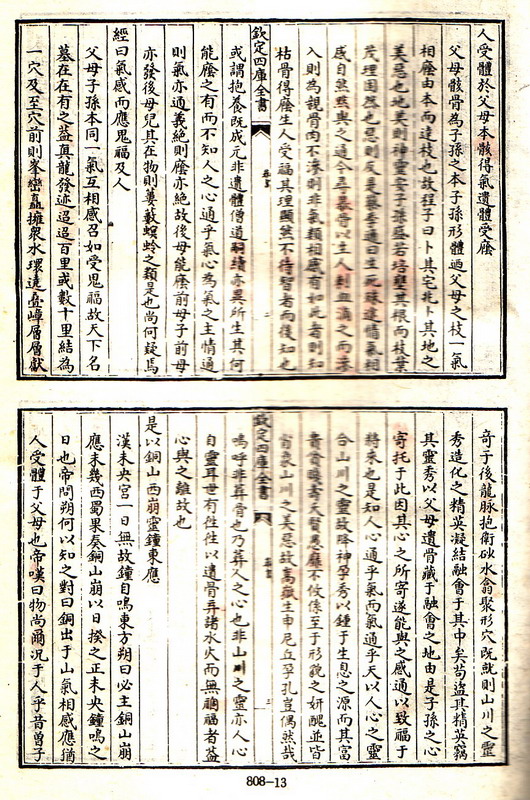 人受體於父母本骸得氣遺體受廕
父母骸骨為子孫之本子孫形體廼父母之枝一氣
相廕由本而達枝也故程子曰卜其宅兆卜其地之
美惡也地美則神靈安子孫盛若培壅其根而枝葉
茂理固然也惡則反是蔡季通曰生死殊途情氣相
感自然黙與之通今尋暴骨以生人刺血滴之而滲
入則為親骨肉不滲則非氣類相感有如此者則知
枯骨得廕生人受福其理顯然不待智者而後知也
欽定四庫全書
葬書
二
或謂抱養既成元非遺體僧道嗣續亦異所生其何
能廕之有而不知人之心通乎氣心為氣之主情通
則氣亦通義絶則廕亦絶故後母能廕前母子前母
亦發後母兒其在物則蔞藪螟蛉之類是也尚何疑焉
經曰氣感而應鬼福及人
父母子孫本同一氣互相感召如受鬼福故天下名
墓在在有之蓋真龍發迹迢迢百里或數十里結為
一穴及至穴前則峯巒矗擁衆水環遶疊嶂層層獻
奇于後龍脉抱衛砂水翕聚形穴既就則山川之靈
秀造化之精英凝結融會于其中矣苟盜其精英竊
其靈秀以父母遺骨藏于融會之地由是子孫之心
寄托于此因其心之所寄遂能與之感通以致福于
將來也是知人心通乎氣而氣通乎天以人心之靈
合山川之靈故降神孕秀以鍾于生息之源而其富
貴貧賤壽夭賢愚靡不攸係至于形貌之妍醜並皆
肖象山川之美惡故嵩嶽生申尼丘孕孔豈偶然哉
欽定四庫全書
葬書
嗚呼非葬骨也乃葬人之心也非山川之靈亦人心
自靈耳世有往往以遺骨弃諸水火而無禍福者蓋
心與之離故也
是以銅山西崩靈鐘東應
漢未央宫一日無故鐘自鳴東方朔曰必主銅山崩
應未幾西蜀果奏銅山崩以日揆之正未央鐘鳴之
日也帝問朔何以知之對曰銅出于山氣相感應猶
人受體于父母也帝嘆曰物尚爾況于人乎昔曾子
808-13